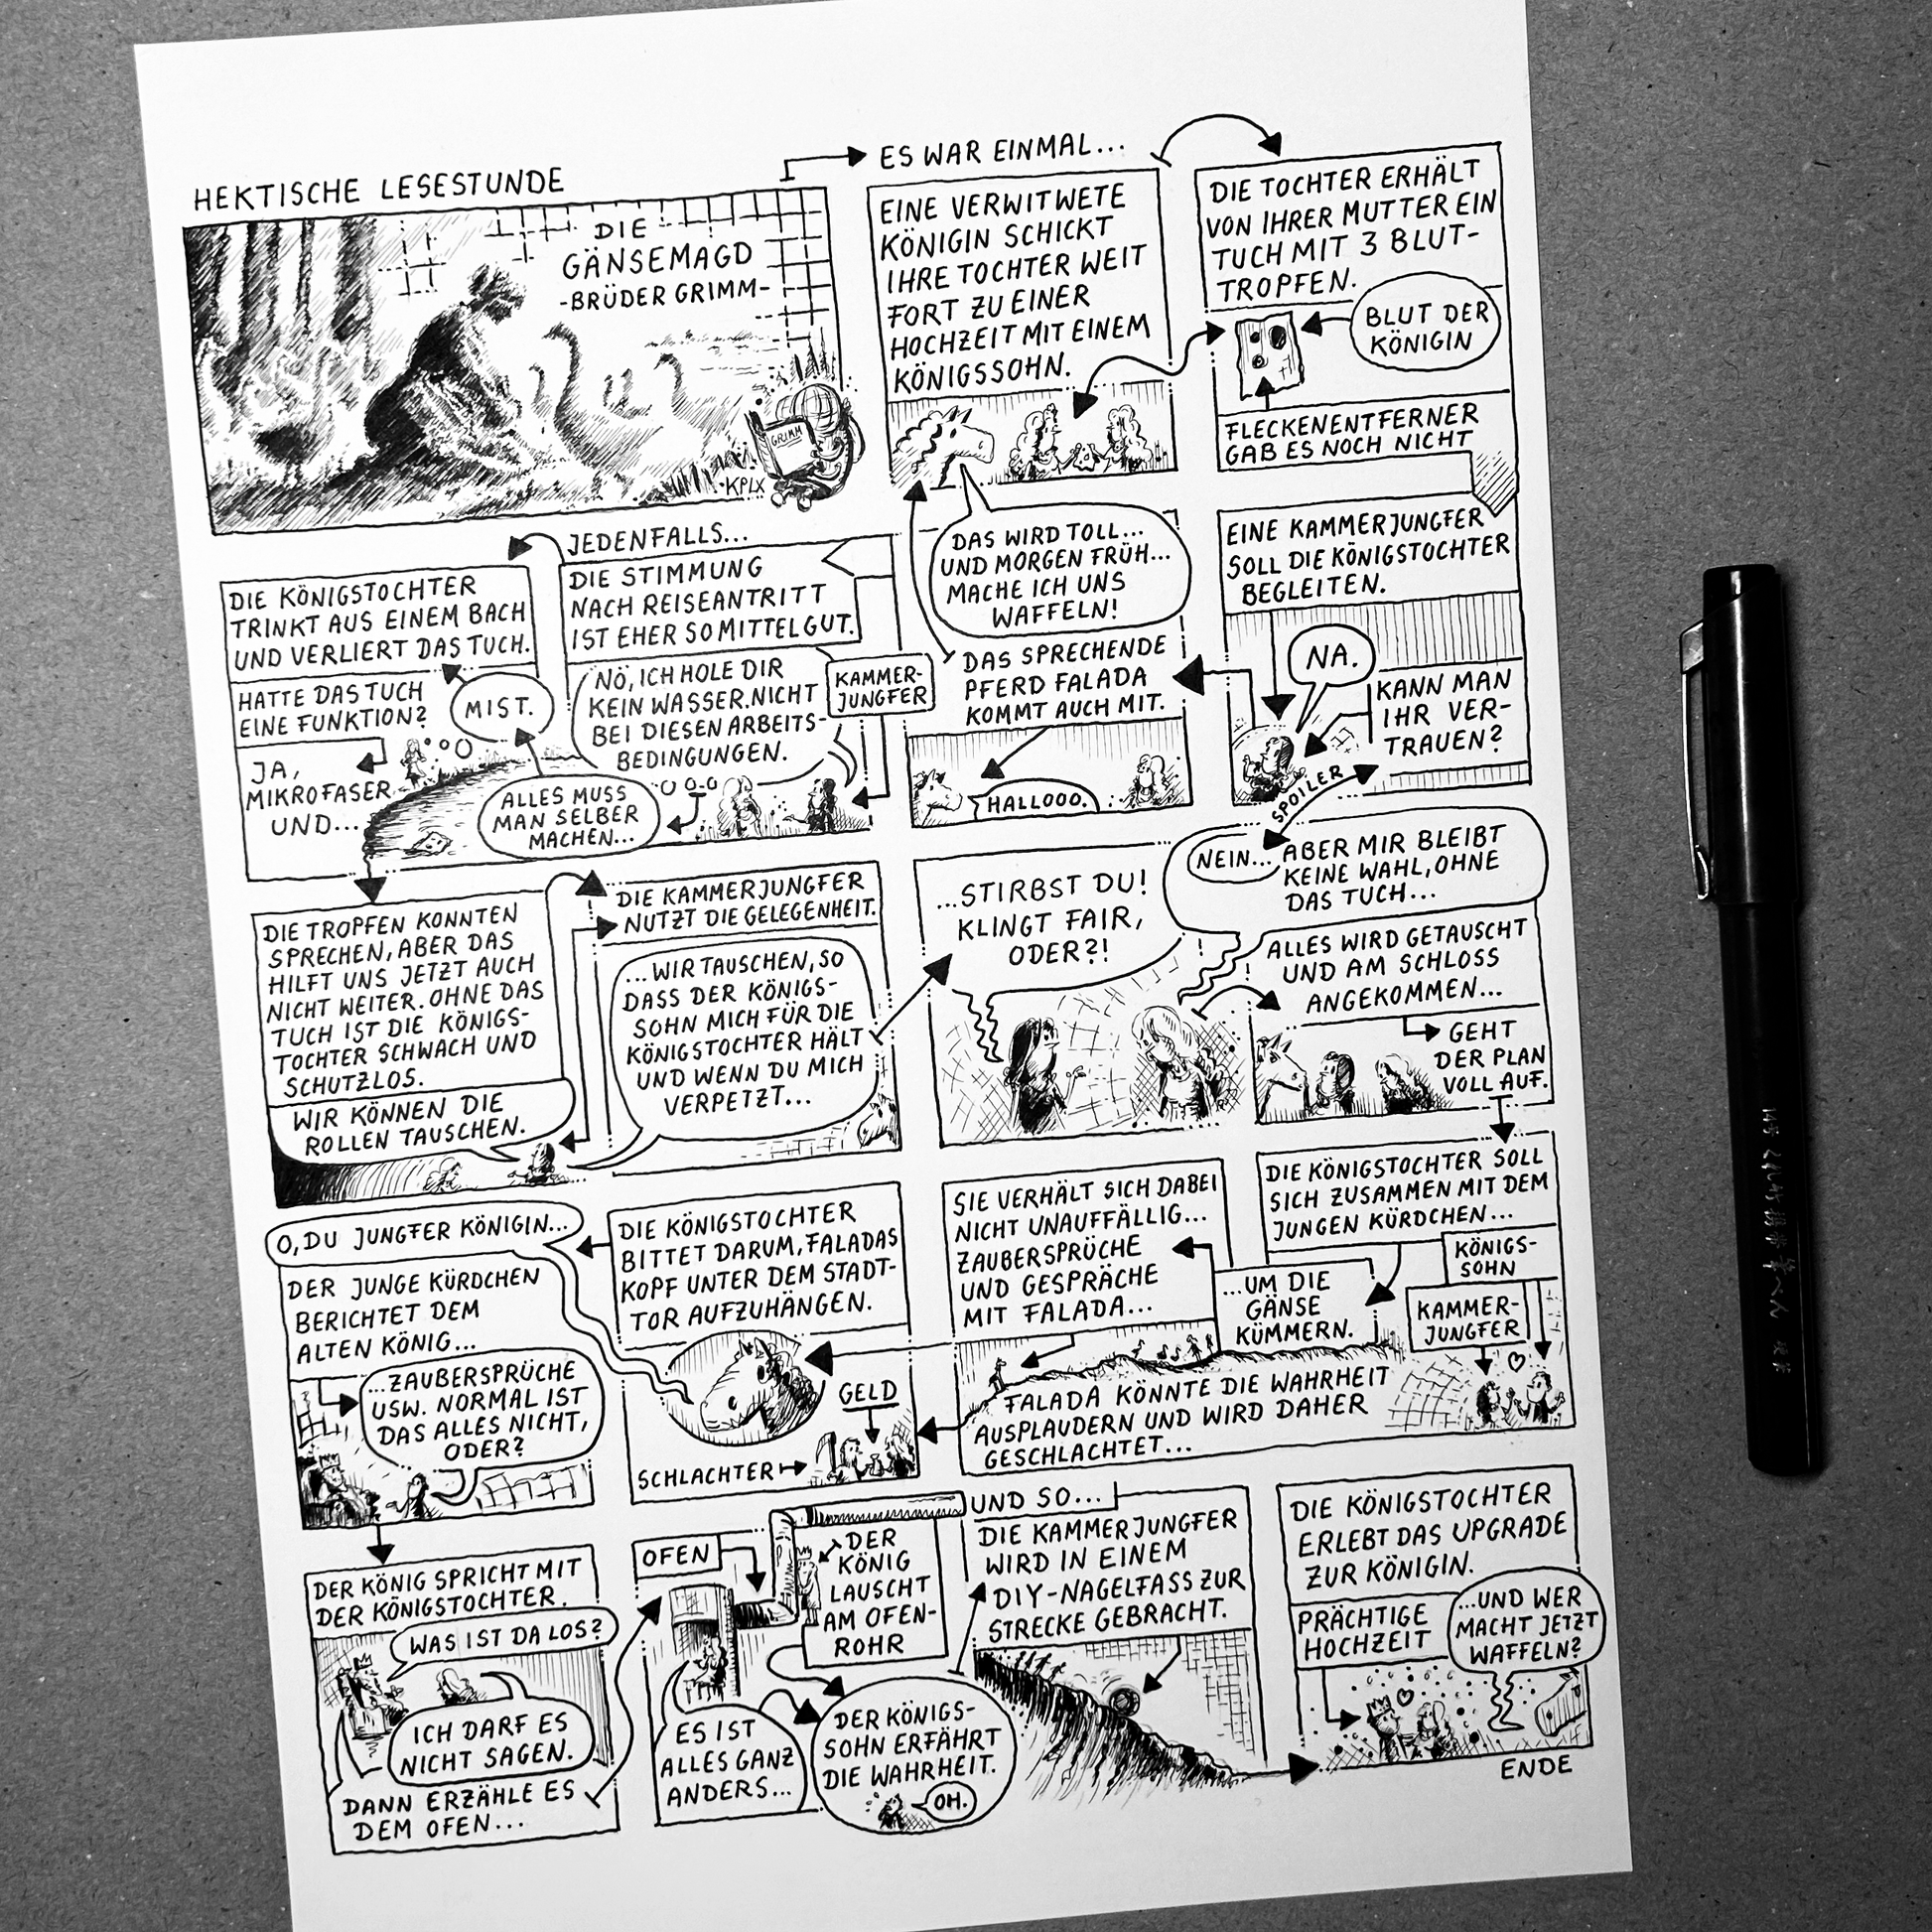 HEKTISCHE LESESTUNDE
DIE
GÄNSEMAGD
-BRÜDER GRIMM-
GRIMM
KPLX
ES WAR EINMAL...
EINE VERWITWETE
KÖNIGIN SCHICKT
IHRE TOCHTER WEIT
FORT ZU EINER
HOCHZEIT MIT EINEM
KÖNIGSSOHN.
DIE TOCHTER ERHÄLT
VON IHRER MUTTER EIN
TUCH MIT 3 BLUT-
TROPFEN.
BLUT DER
KÖNIGIN
FLECKENENTFERNER
GAB ES NOCH NICHT
EINE KAMMERJUNGFER
SOLL DIE KÖNIGSTOCHTER
BEGLEITEN.
NA.
KANN MAN
IHR VER-
TRAUEN?
SPOILER
DAS SPRECHENDE
PFERD FALADA
KOMMT AUCH MIT.
HALLOOO.
DAS WIRD TOLL...
UND MORGEN FRÜH...
MACHE ICH UNS
WAFFELN!
JEDENFALLS...
DIE STIMMUNG
NACH REISEANTRITT
IST EHER SO MITTELGUT.
NÖ, ICH HOLE DIR
KEIN WASSER. NICHT
BEI DIESEN ARBEITS-
BEDINGUNGEN.
KAMMER-
JUNGFER
ALLES MUSS
MAN SELBER
MACHEN...
DIE KÖNIGSTOCHTER
TRINKT AUS EINEM BACH
UND VERLIERT DAS TUCH.
MIST.
HATTE DAS TUCH
EINE FUNKTION?
JA,
MIKROFASER
UND...
DIE TROPFEN KONNTEN
SPRECHEN, ABER DAS
HILFT UNS JETZT AUCH
NICHT WEITER. OHNE DAS
TUCH IST DIE KÖNIGS-
TOCHTER SCHWACH UND
SCHUTZLOS.
WIR KÖNNEN DIE
ROLLEN TAUSCHEN.
DIE KAMMERJUNGFER
NUTZT DIE GELEGENHEIT.
...WIR TAUSCHEN, SO
DASS DER KÖNIGS-
SOHN MICH FÜR DIE
KÖNIGSTOCHTER HÄLT
UND WENN DU MICH
VERPETZT...
...STIRBST DU!
KLINGT FAIR,
ODER?!
NEIN...
ABER MIR BLEIBT
KEINE WAHL, OHNE
DAS TUCH...
ALLES WIRD GETAUSCHT
UND AM SCHLOSS
ANGEKOMMEN...
GEHT
DER PLAN
VOLL AUF.
DIE KÖNIGSTOCHTER SOLL
SICH ZUSAMMEN MIT DEM
JUNGEN KÜRDCHEN...
KÖNIGS-
SOHN
KAMMER-
JUNGFER
...UM DIE
GÄNSE
KÜMMERN.
SIE VERHÄLT SICH DABEI
NICHT UNAUFFÄLLIG...
ZAUBERSPRÜCHE
UND GESPRÄCHE
MIT FALADA...
FALADA KÖNNTE DIE WAHRHEIT
AUSPLAUDERN UND WIRD DAHER
GESCHLACHTET...
DIE KÖNIGSTOCHTER
BITTET DARUM, FALADAS
KOPF UNTER DEM STADT-
TOR AUFZUHÄNGEN.
GELD
SCHLACHTER
O, DU JUNGFER KÖNIGIN...
DER JUNGE KÜRDCHEN
BERICHTET DEM
ALTEN KÖNIG...
...ZAUBERSPRÜCHE
USW. NORMAL IST
DAS ALLES NICHT,
ODER?
DER KÖNIG SPRICHT MIT
DER KÖNIGSTOCHTER.
WAS IST DA LOS?
ICH DARF ES
NICHT SAGEN.
DANN ERZÄHLE ES
DEM OFEN...
OFEN
DER
KÖNIG
LAUSCHT
AM OFEN-
ROHR
ES IST
ALLES GANZ
ANDERS...
DER KÖNIGS-
SOHN ERFÄHRT
DIE WAHRHEIT.
OH.
UND SO...
DIE KAMMERJUNGFER
WIRD IN EINEM
DIY-NAGELFASS ZUR
STRECKE GEBRACHT.
DIE KÖNIGSTOCHTER
ERLEBT DAS UPGRADE
ZUR KÖNIGIN.
PRÄCHTIGE
HOCHZEIT
...UND WER
MACHT JETZT
WAFFELN?
ENDE